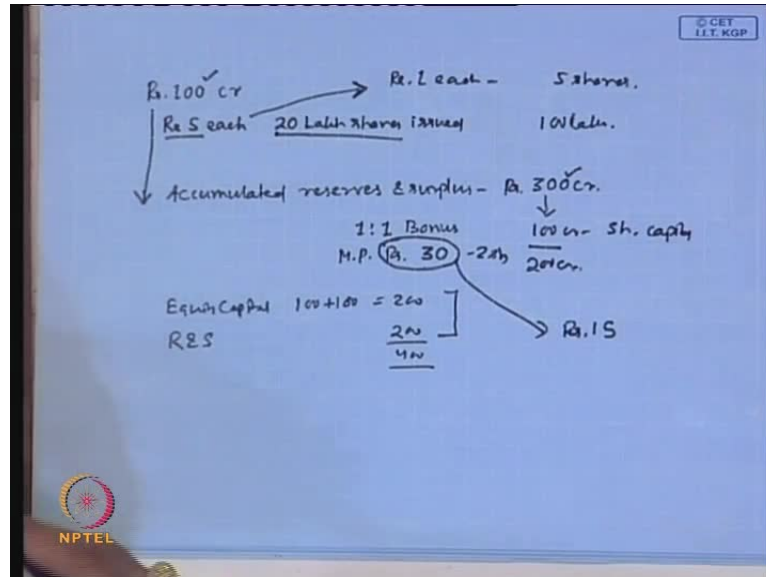 © CET
I.I.T. KGP
Rs. 100 cr
Rs. 1 each - 5 shares.
Rs 5 each 20 Lakh shares issued 100 lakh.
Accumulated reserves & surplus - Rs. 300 cr.
1:1 Bonus 100 cr - Sh. capital
M.P. Rs. 30 - 2 sh 200 cr.
Equity Capital 100 + 100 = 200
R & S 200
Rs. 15
400
NPTEL